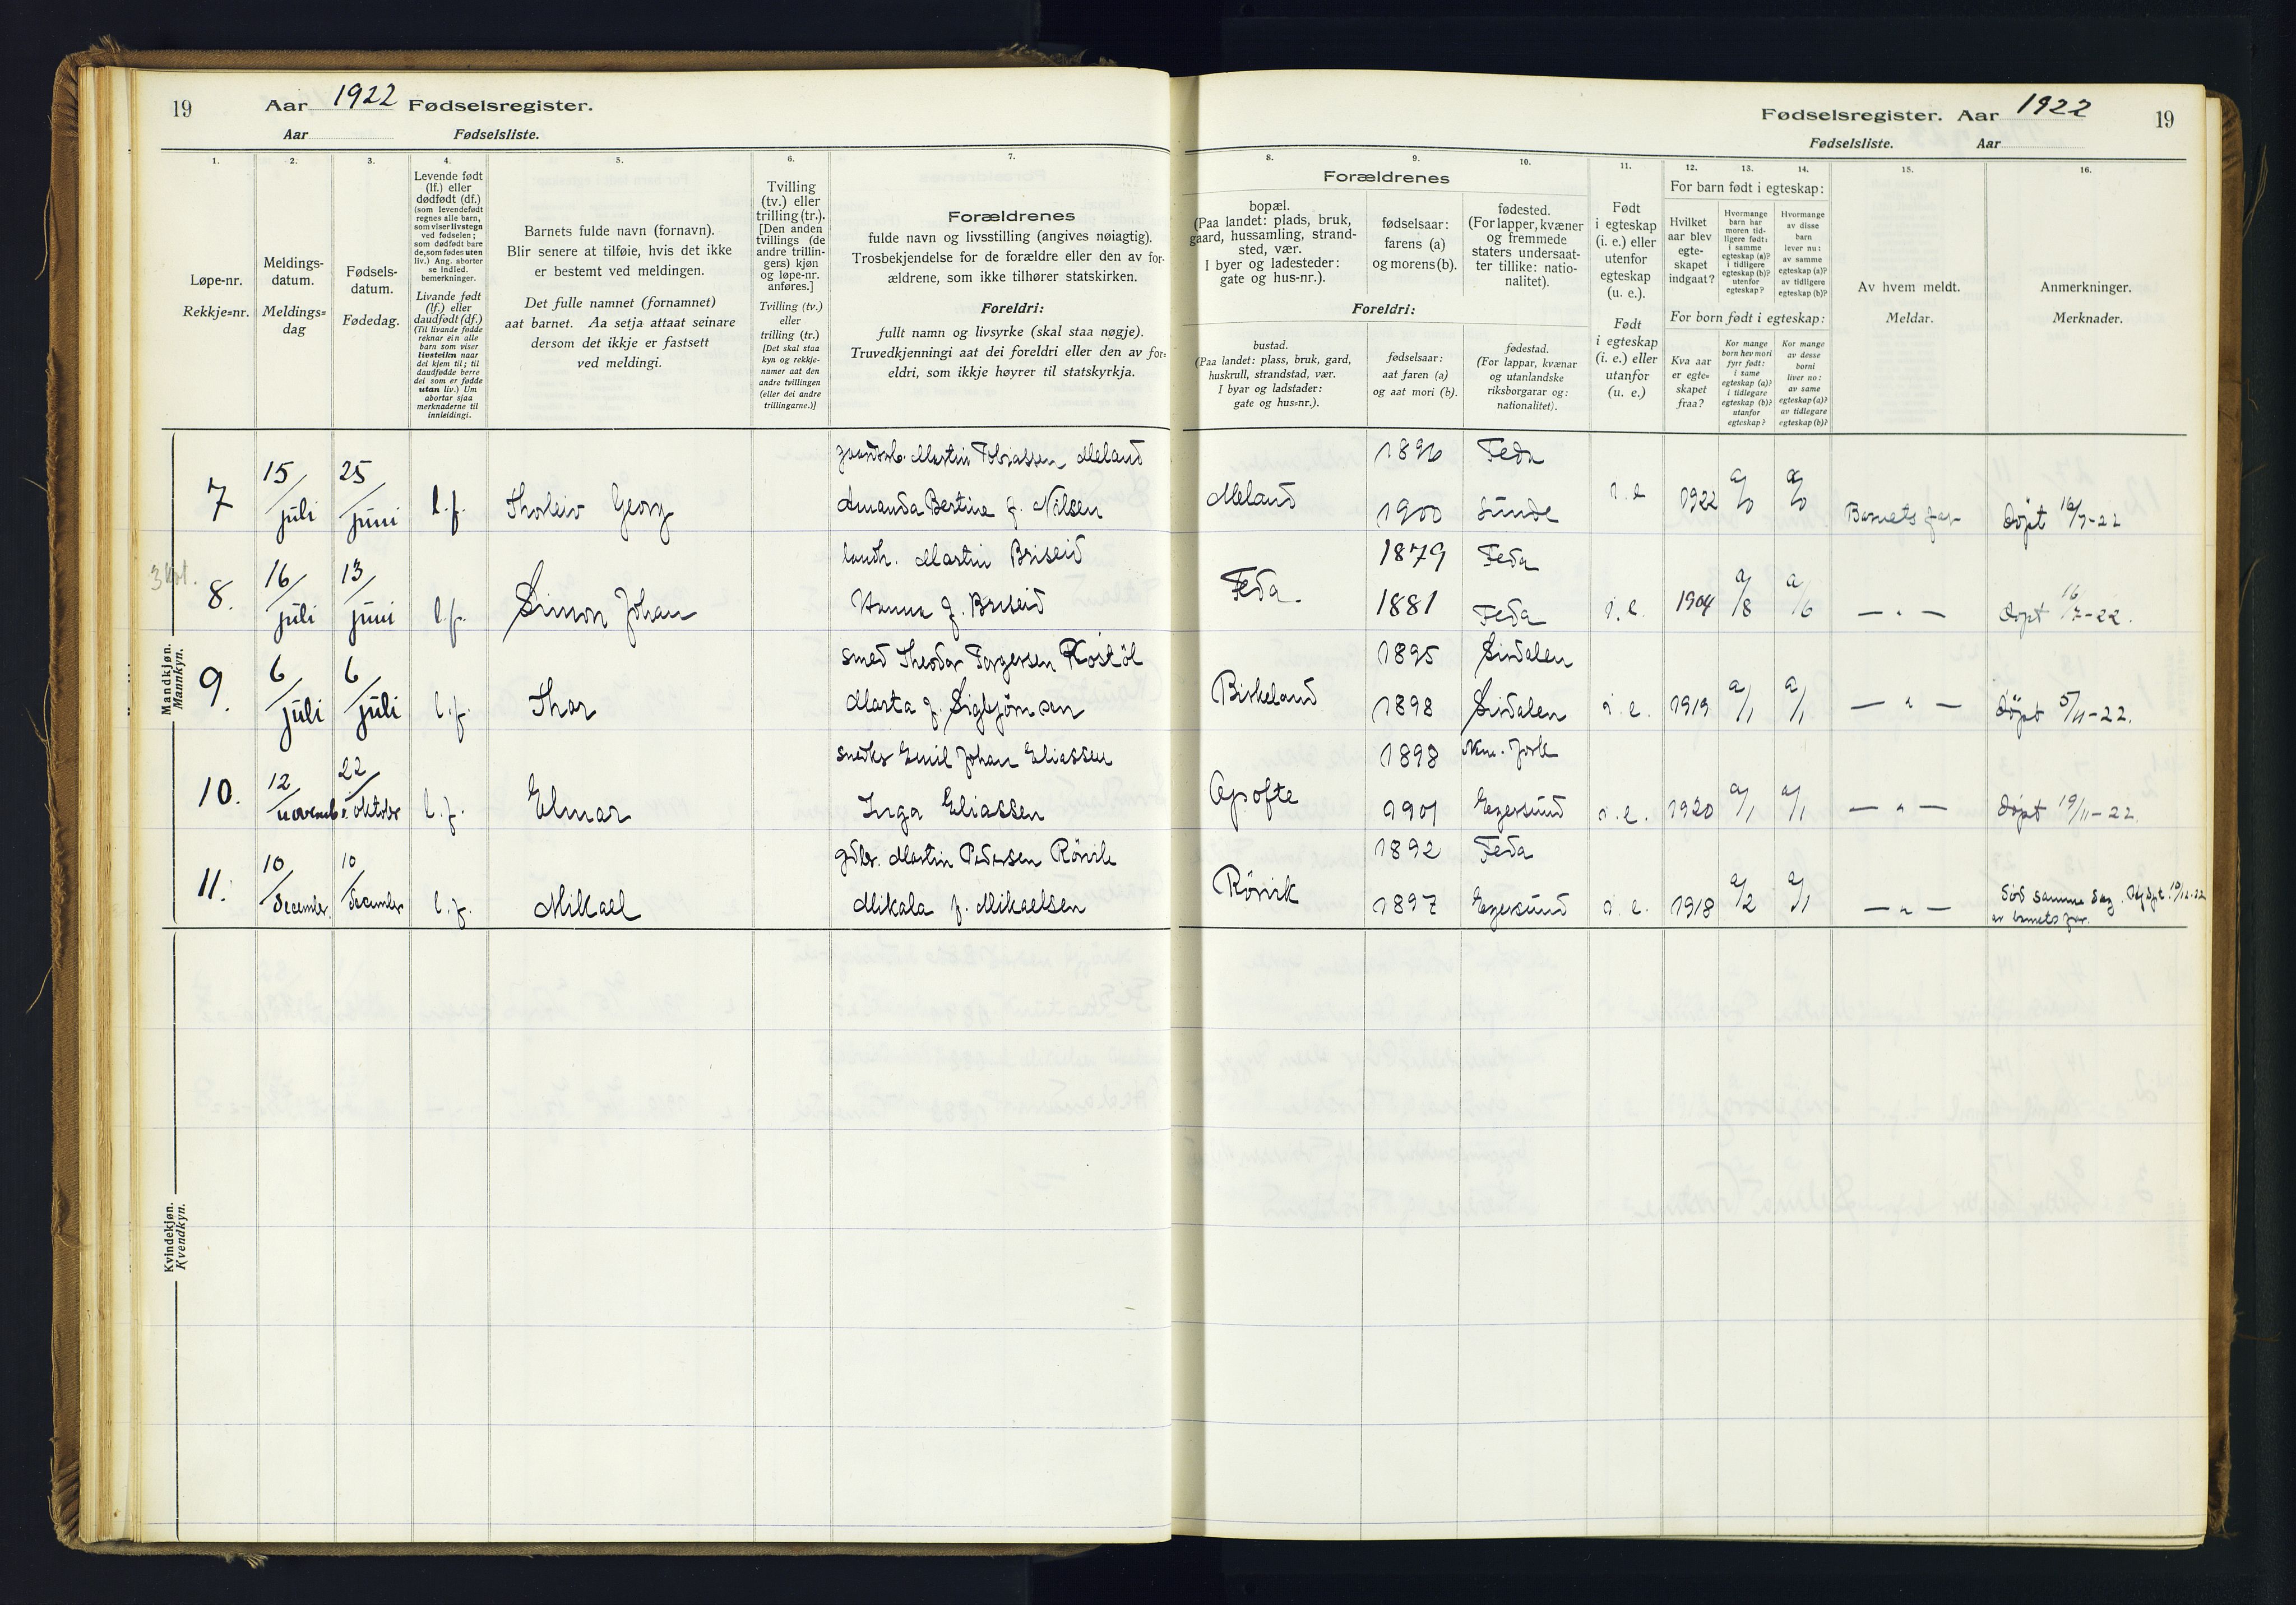 19
Aar 1922 Fødselsregister.
Aar Fødselsliste.
1.
2.
3.
4.
5.
6.
7.
Løpe-nr.
Rekkje=nr.
Meldings-
datum.
Meldings=
dag
Fødsels-
datum.
Fødedag.
Levende født
(lf.) eller
dødfødt (df.)
(som levendefødt
regnes alle barn,
som viser livstegn
ved fødselen;
som dødfødt bare
de, som fødes uten
liv.) Ang. aborter
se indled.
bemerkninger.
Livande født
(lf.) eller
daudfødt (df.)
(Til livande fødde
reknar ein alle
barn som viser
livsteikn naar
dei kjem til; til
daudfødde berre
dei som er fødde
utan liv.) Um
abortar sjaa
merknaderne til
innleidingi.
Barnets fulde navn (fornavn).
Blir senere at tilføie, hvis det ikke
er bestemt ved meldingen.
Det fulle namnet (fornamnet)
aat barnet. Aa setja attaat seinare
dersom det ikkje er fastsett
ved meldingi.
Tvilling
(tv.) eller
trilling (tr.).
[Den anden
tvillings (de
andre trillin-
gers) kjøn
og løpe-nr.
anføres.]
Tvilling (tv.)
eller
trilling (tr.)
[Det skal staa
kyn og rekkje-
numer aat den
andre tvillingen
(eller dei andre
trillingarne.)]
Forældrenes
fulde navn og livsstilling (angives nøiagtig).
Trosbekjendelse for de forældre eller den av for-
ældrene, som ikke tilhører statskirken.
Foreldri:
fullt namn og livsyrke (skal staa nøgje).
Truvedkjenningi aat dei foreldri eller den av for=
eldri, som ikkje høyrer til statskyrkja.
Mandkjøn.
Mannkyn.
7 15/juli 25/juni l.f. Thorleiv Georg
Martin Tobiassen Meland
Amanda Bertine f. Nilsen
8. 16/juli 13/juni l.f. Simon Johan
landh. Martin Briseid
Hanna f. Briseid
9. 6/juli 6/juli l.f. Thor
smed Theodor Torgersen Rostöl
Marta f. Sigbjörnsen
10. 12/novemb. 22/oktober l.f. Elmar
snedker Emil Johan Eliassen
Inga Eliassen
11. 10/december 10/december l.f. Mikael
gdbr. Martin Pedersen Rörvik
Mikala f. Mikaelsen
Kvindekjøn.
Kvendkyn.
Fødselsregister. Aar 1922
19
Fødselsliste. Aar
8.
9.
10.
11.
12.
13.
14.
15.
16.
Forældrenes
bopæl.
(Paa landet: plads, bruk,
gaard, hussamling, strand-
sted, vær.
I byer og ladesteder:
gate og hus-nr.).
fødselsaar:
farens (a)
og morens (b).
fødested.
(For lapper, kvæner
og fremmede
staters undersaat-
ter tillike: natio-
nalitet).
Foreldri:
bustad.
(Paa landet: plass, bruk, gard,
huskrull, strandstad, vær.
I byar og ladstader:
gate og hus=nr.).
fødselsaar:
aat faren (a)
og aat mori (b).
fødestad.
(For lappar, kvænar
og utanlandske
riksborgarar og:
nationalitet).
Født
i egteskap
(i. e.) eller
utenfor
egteskap
(u. e.).
Født
i egteskap
(i. e.) eller
utanfor
(u. e.)
For barn født i egteskap:
Hvilket
aar blev
egte-
skapet
indgaat?
Hvormange
barn har
moren tid-
ligere født:
i samme
egteskap (a)?
i tidligere
egteskap (b)?
utenfor
egteskap?
Hvormange
av disse
barn
lever nu:
av samme
egteskap (a)?
av tidligere
egteskap (b)?
For born født i egteskap:
Kva aar
er egte-
skapet
fraa?
Kor mange
born hev mori
fyrr født:
i same
egteskap (a)?
i tidlegare
egteskap (b)?
utanfor
egteskap?
Kor mange
av desse
borni
liver no:
av same
egteskap (a)?
av tidlegare
egteskap (b)?
Av hvem meldt.
Meldar.
Anmerkninger.
Merknader.
1896 Feda
Meland 1900 Sunde i. e 1922 a/0 a/0 Barnets far Döpt 16/7-22
1879 Feda
Feda 1881 Feda i. e. 1904 a/8 a/6 — " — Döpt 16/7-22.
1895 Sirdalen
Birkeland 1898 Sirdalen i. e. 1919 a/1 a/1 — " — Döpt 5/11-22.
1898 New-York
Apofte 1901 Egersund i. e. 1920 a/1 a/1 — " — Döpt 19/11-22.
1892 Feda
Rörvik 1897 Egersund i. e. 1918 a/2 a/1 — " — Död samme dag. Hjdpt. 10/12-22
av barnets far.